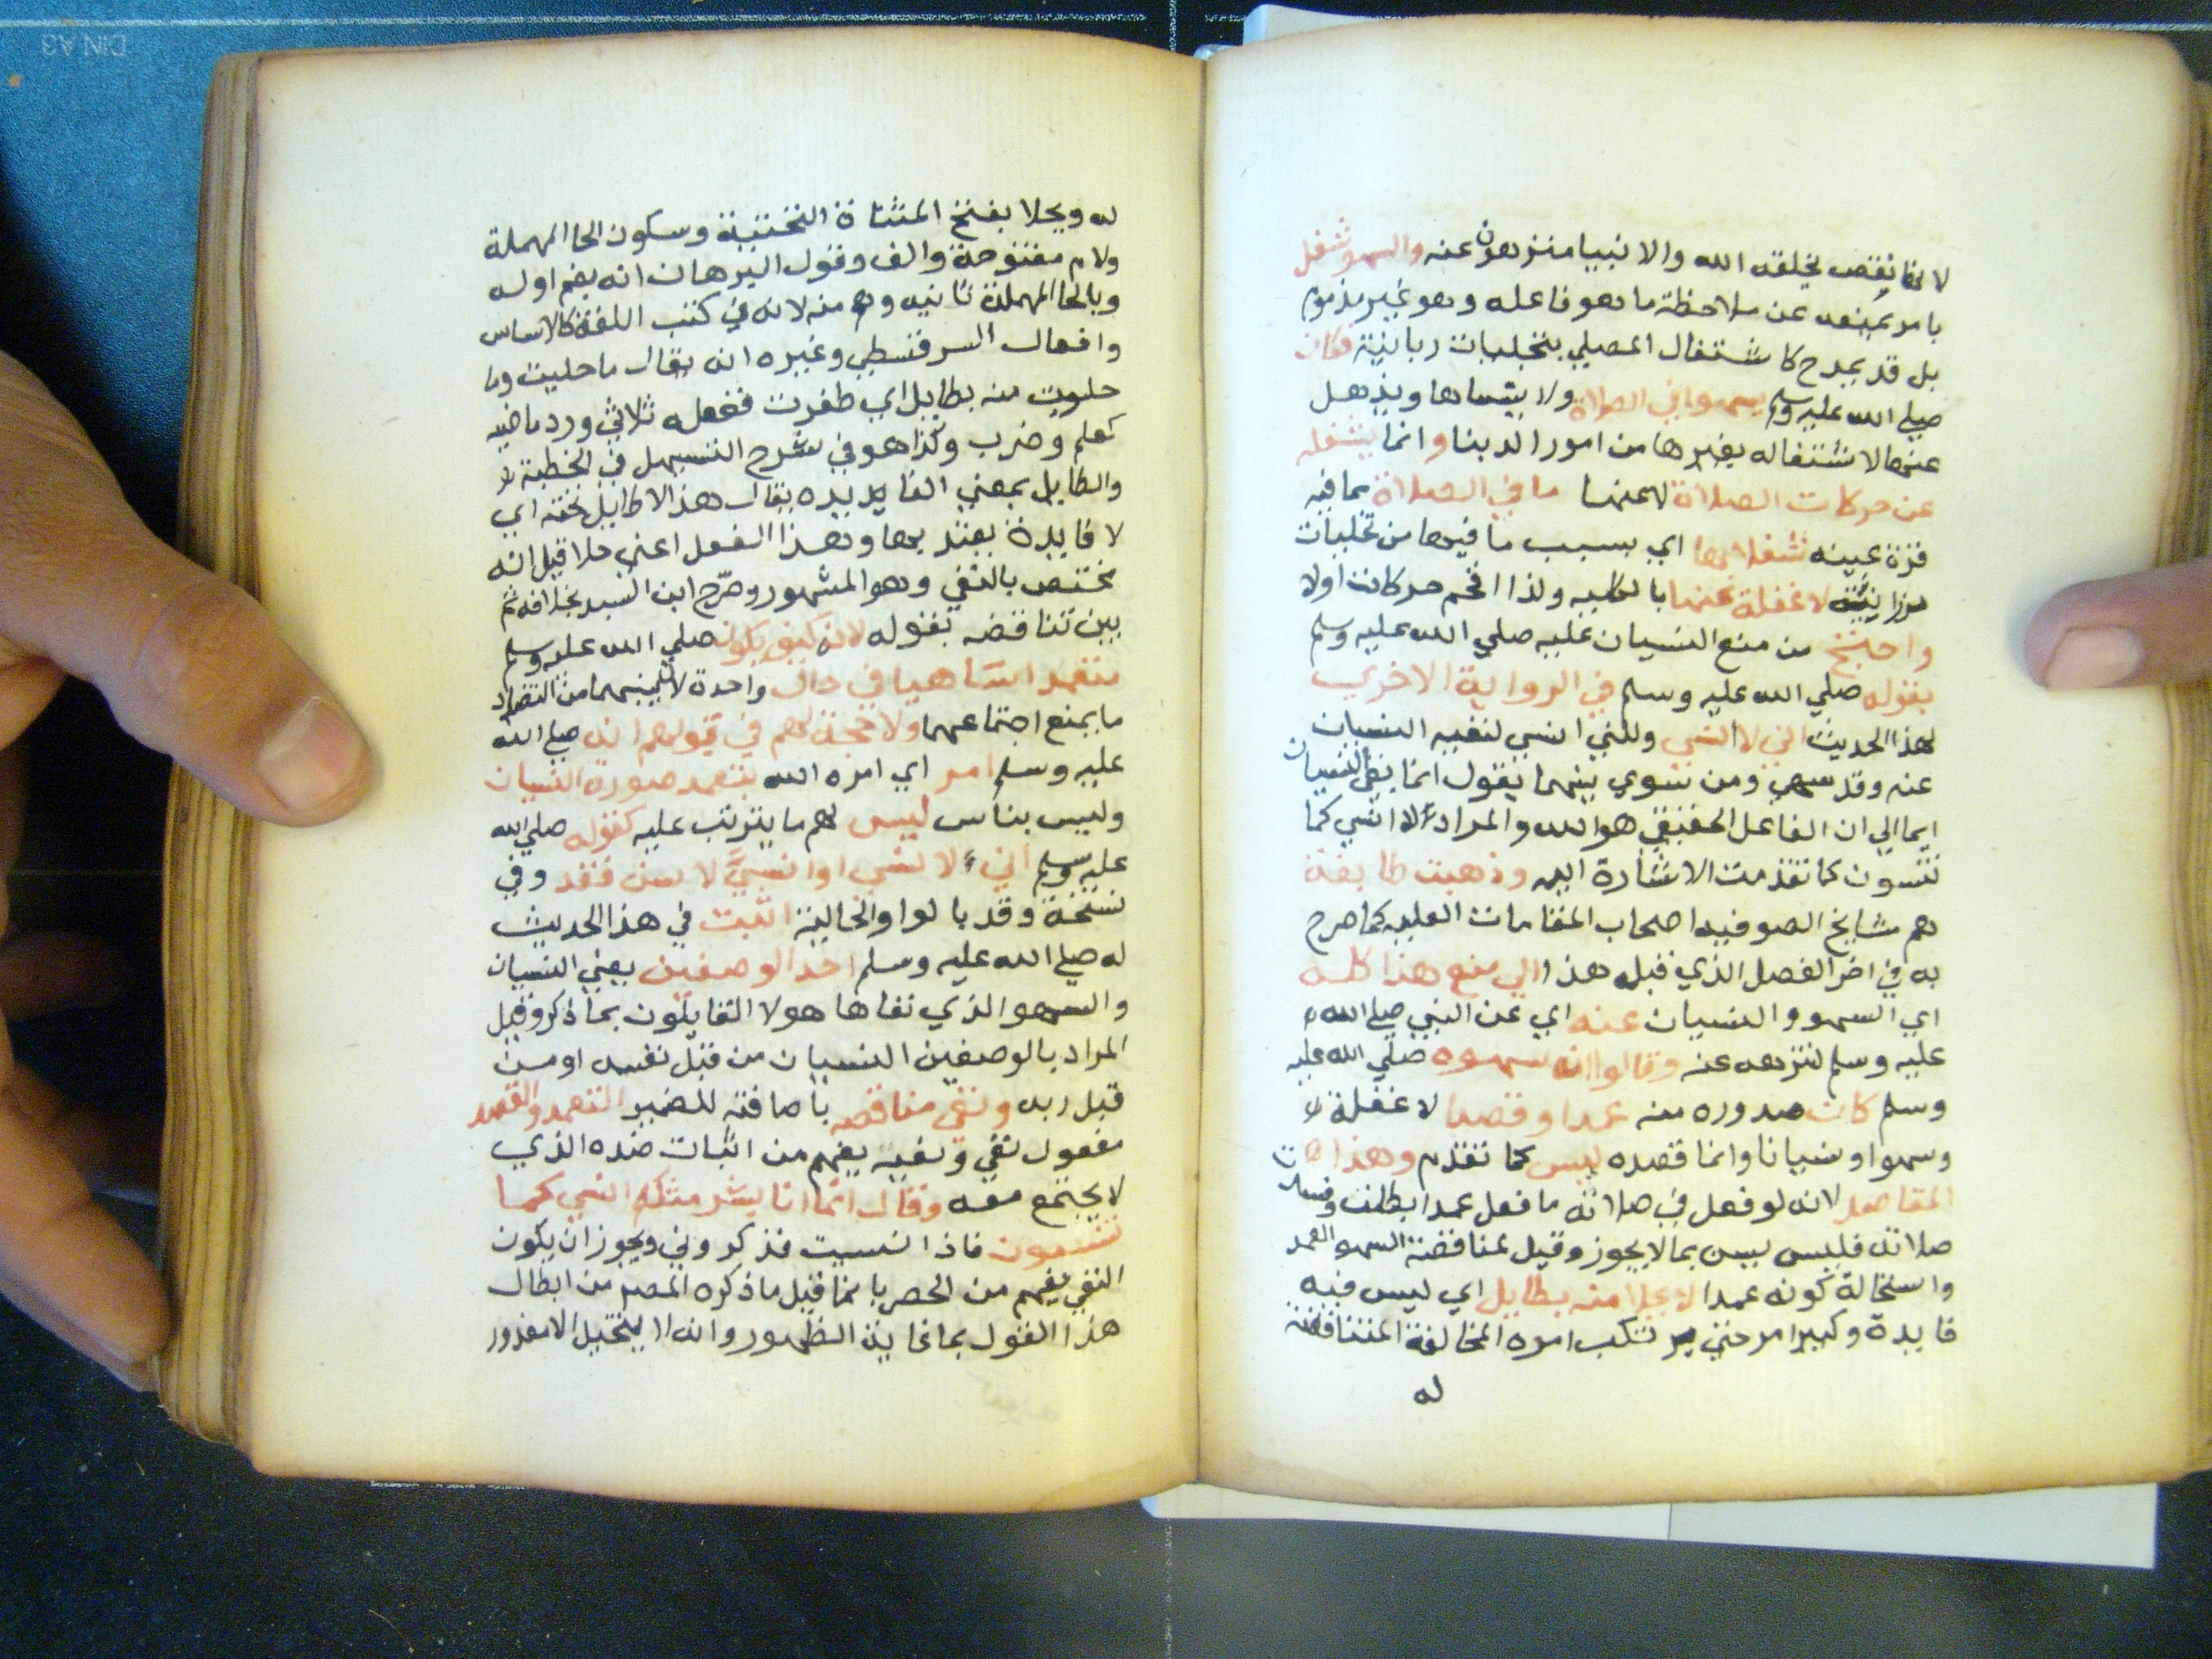 لانها نقص يخلقه الله والانبيا منزهون عنه والسهو شغل
بامر يمنعه عن ملاحظة ما هو فاعله وهو غير مذموم
بل قد يمدح كاشتغال المصلي بتجليات ربانية فكان
صلي الله عليه وسلم يسهو في الصلاة ولا ينساها ويذهل
عنها لاشتغاله بغيرها من امور الدنيا وانما يشغله
عن حركات الصلاة لا عنها ما في الصلاة مما فيه
قرة عينه شغلا بها اي بسبب ما فيها من تجليات
ربانية لا غفلة عنها بالكليه ولذا اقحم حركات اولا
واحتج من منع النسيان عليه صلي الله عليه وسلم
بقوله صلي الله عليه وسلم في الرواية الاخري
لهذا الحديث اني لا انسي ولكني انسي لنفيه النسيان
عنه وقد سهي ومن سوي بينهما يقول انما نفي النسيان
ايما الي ان الفاعل الحقيقي هو الله والمراد لا انسي كما
تنسون كما تقدمت الاشارة اليه وذهبت طايفة
هم مشايخ الصوفيه اصحاب المقامات العليه كما صرح
به في اخر الفصل الذي قبله هذا الي منع هذا كله
اي السهو والنسيان عنه اي عن النبي صلي الله
عليه وسلم لتنزهه عنه وقالوا انه سهوه صلي الله عليه
وسلم كان صدوره منه عمدا وقصدا لا غفلة
وسهوا ونسيانا وانما قصده ليسن كما تقدم وهذا
المقاصد لانه لو فعل في صلاته ما فعل عمدا بطلت وفسدت
صلاته فليس يسن بما لا يجوز وقيل لمناقضة السهو العمد
واستحالة كونه عمدا لا يحلا منه بطايل اي ليس فيه
فايدة وكبير امر حتي يرتكب امره المخالفة المتناقضة
له
له ويحلا بفتح المثناة التحتية وسكون الحا المهملة
ولام مفتوحة والف وقول البرهان انه بضم اوله
وبالخا المهملة ثانيه وهم منه لانه في كتب اللغة كالاساس
وافعال السرقسطي وغيره انه يقال ما حليت وما
حلوت منه بطايل اي ظفرت ففعله ثلاثي ورد ماضيه
كعلم وضرب وكذا هو في شرح التسهيل في الخطبة
والطايل بمعني الفايده يقال هذا لا طايل تحته اي
لا فايدة يعتد بها وهذا الفعل اعني حلا قيل انه
يختص بالنفي وهو المشهور وصرح ابن السيد بخلافه ثم
بين تناقضه بقوله لانه كيف يكون صلي الله عليه وسلم
متعمدا ساهيا في حال واحدة لان بينهما من التضاد
ما يمنع اجتماعهما ولا حجة لهم في قولهم انه صلي الله
عليه وسلم امر اي امره الله بتعمد صورة النسيان
وليس بناس ليسن لهم ما يترتب عليه كقوله صلي الله
عليه وسلم اني لا نسي او انسي لا سن فقد وفي
نسخة وقد بالواو الحالية اثبت في هذا الحديث
له صلي الله عليه وسلم احد الوصفين يعني النسيان
والسهو الذي نفاها هولا القايلون بما ذكر وقيل
المراد بالوصفين النسيان من قبل نفسه او من
قبل ربه ونفي مناقضه باضافته للضمير التعمد والقصد
مفعول نفي ونفيه يفهم من اثبات ضده الذي
لا يجتمع معه وقال انما انا بشر مثلكم انسي كما
تنسون فاذا نسيت فذكروني ويجوز ان يكون
النفي يفهم من الحصر بانما قيل ما ذكره المص من ابطال
هذا القول بما غاية الظهور وانه لا يتخيل الامعذور